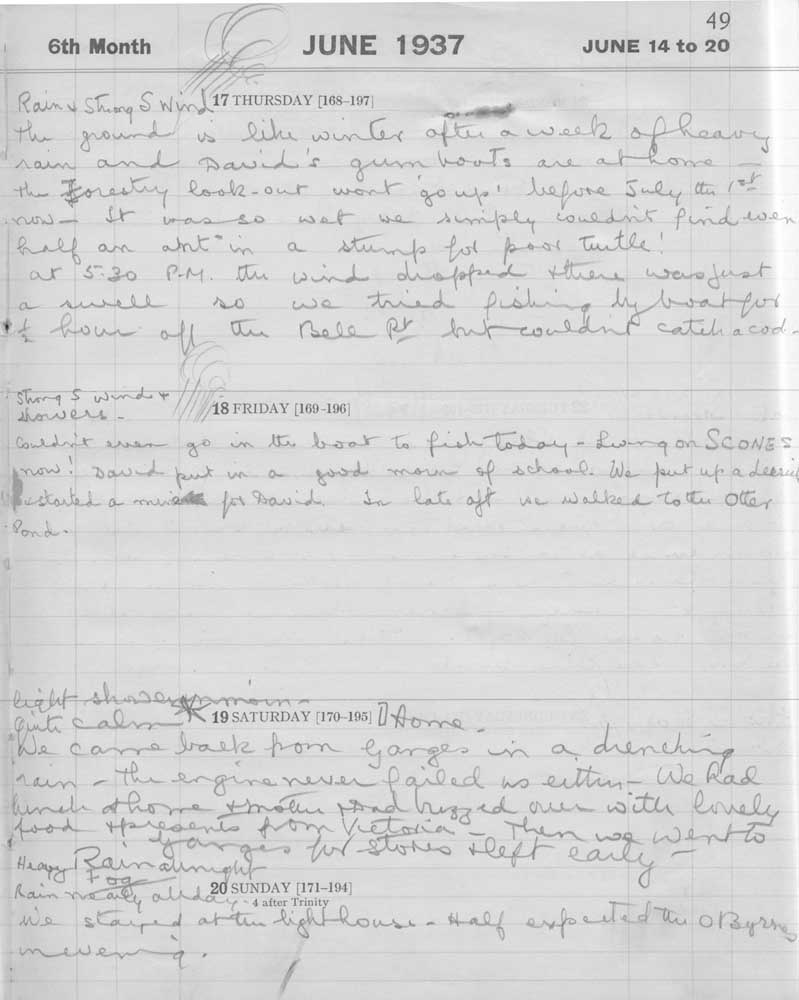 49
6th Month JUNE 1937 JUNE 14 to 20
Rain & Strong S Wind 17 THURSDAY [168–197]
The ground is like winter after a week of heavy
rain and David's gum boots are at home —
the Forestry look-out wont 'go up' before July the 1st
now — It was so wet we simply couldn't find even
half an ant in a stump for poor turtle!
at 5:30 P.M. the wind dropped & there was just
a swell so we tried fishing by boat for
½ hour off the Bell Pt but couldn't catch a cod -
Strong S wind &
showers -
18 FRIDAY [169–196]
Couldn't even go in the boat to fish today - Living on SCONES
now! David put in a good morn of school. We put up a
& started a for David. In late aft we walked to the Otter
Pond.
light showers in morn -
Quite calm 19 SATURDAY [170–195] Home -
We came back from Ganges in a drenching
rain - The engine never failed us either - We had
lunch at home & mother & Dad buzzed over with lovely
food & presents from Victoria - Then we went to
Ganges for stores & left early -
Heavy Rain all night
Fog
Rain nearly all day - 20 SUNDAY [171–194]
4 after Trinity
We stayed at the lighthouse - Half expected the O'Byrnes
in evening.